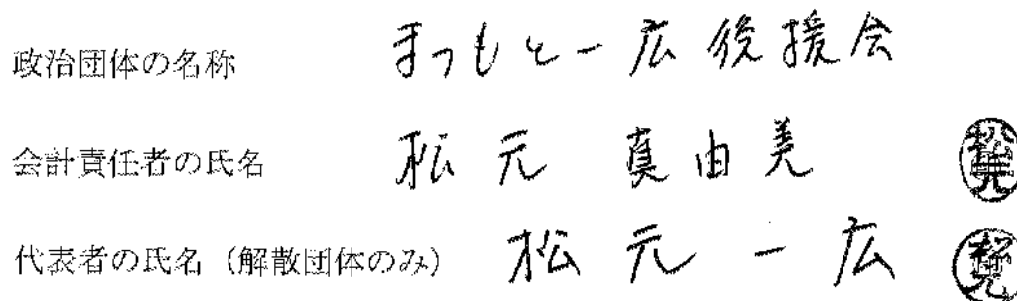 政治団体の名称 まつもと一広後援会
会計責任者の氏名 松元 真由美 松元
代表者の氏名（解散団体のみ） 松元 一広 松元